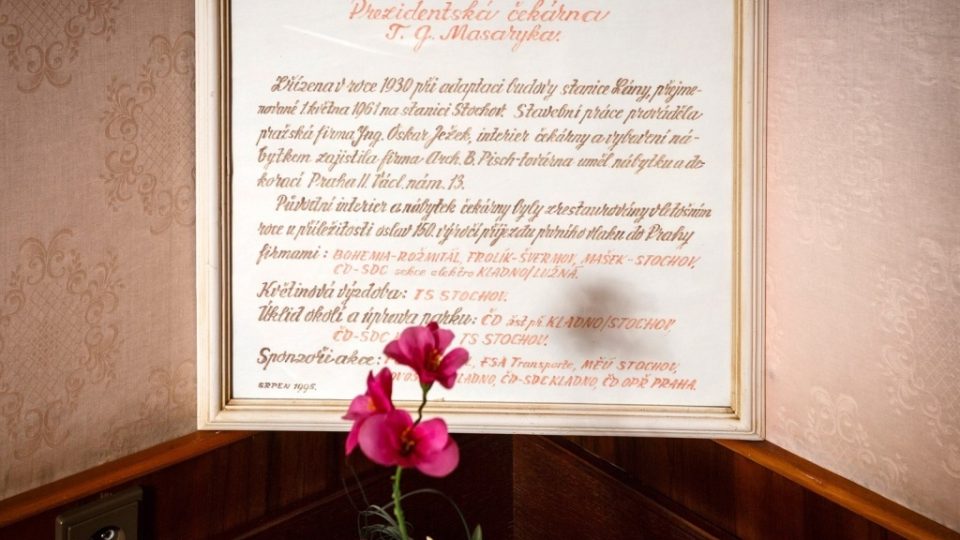 Prezidentská čekárna
T. G. Masaryka.
Zřízena v roce 1930 při adaptaci budovy stanice Lány, přejme-
nované 1. května 1961 na stanici Stochov. Stavební práce prováděla
pražská firma Jng. Oskar Ježek, interier čekárny a vybavení ná-
bytkem zajistila firma Arch. B. Pisch-továrna uměl. nábytku a de-
korací Praha II. Václ. nám. 13.
Původní interier a nábytek čekárny byly zrestaurovány v letošním
roce u příležitosti oslav 150. výročí příjezdu prvního vlaku do Prahy
firmami: BOHEMIA-ROŽMITÁL, FROLÍK-ŠVERMOV, MAŠEK-STOCHOV,
ČD-SDC sekce elektro KLADNO/LUŽNÁ.
Květinová výzdoba: TS STOCHOV.
Úklid okolí a úprava parku: ČD žst. př. KLADNO/STOCHOV,
ČD-SDC TS STOCHOV.
Sponzoři akce: ESA Transporte, MĚÚ STOCHOV,
KLADNO, ČD-SDC KLADNO, ČD OPŘ PRAHA.
SRPEN 1995.